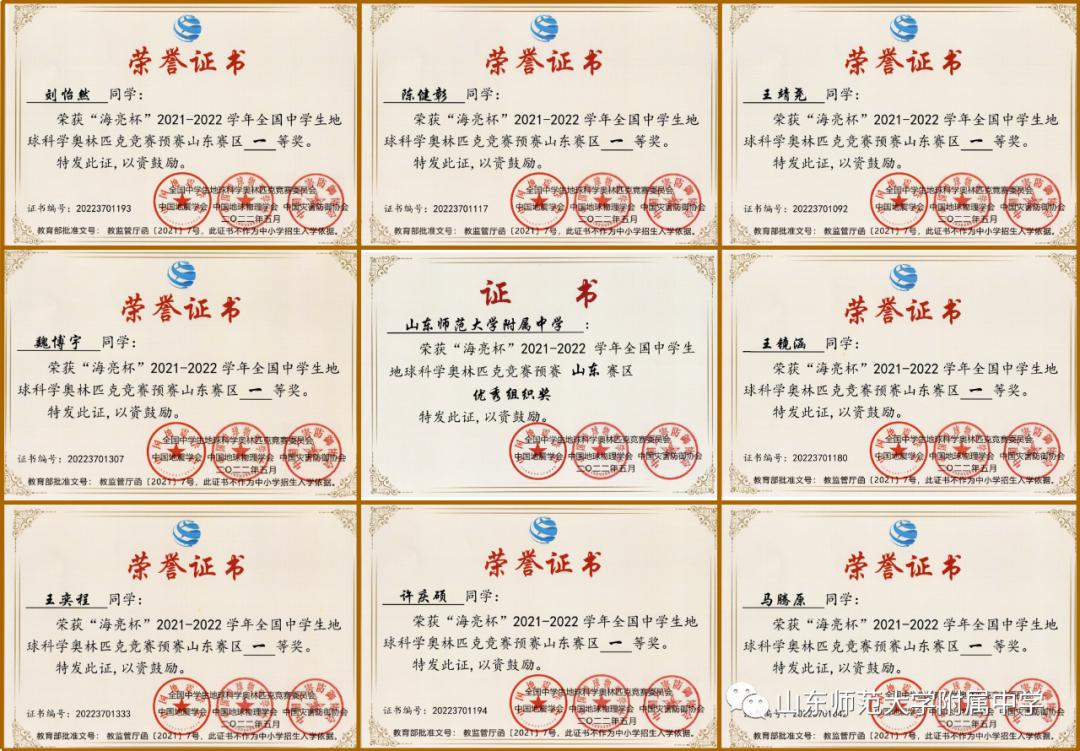 荣誉证书
刘怡然 同学：
荣获“海亮杯”2021-2022 学年全国中学生地
球科学奥林匹克竞赛预赛山东赛区 一 等奖。
特发此证，以资鼓励。
全国中学生地球科学奥林匹克竞赛委员会
中国地震学会 中国地球物理学会 中国灾害防御协会
二〇二二年五月
证书编号：20223701193
教育部批准文号： 教监管厅函〔2021〕7号，此证书不作为中小学招生入学依据。
荣誉证书
陈健彰 同学：
荣获“海亮杯”2021-2022 学年全国中学生地
球科学奥林匹克竞赛预赛山东赛区 一 等奖。
特发此证，以资鼓励。
全国中学生地球科学奥林匹克竞赛委员会
中国地震学会 中国地球物理学会 中国灾害防御协会
二〇二二年五月
证书编号：20223701117
教育部批准文号： 教监管厅函〔2021〕7号，此证书不作为中小学招生入学依据。
荣誉证书
王靖尧 同学：
荣获“海亮杯”2021-2022 学年全国中学生地
球科学奥林匹克竞赛预赛山东赛区 一 等奖。
特发此证，以资鼓励。
全国中学生地球科学奥林匹克竞赛委员会
中国地震学会 中国地球物理学会 中国灾害防御协会
二〇二二年五月
证书编号：20223701092
教育部批准文号： 教监管厅函〔2021〕7号，此证书不作为中小学招生入学依据。
荣誉证书
魏博宇 同学：
荣获“海亮杯”2021-2022 学年全国中学生地
球科学奥林匹克竞赛预赛山东赛区 一 等奖。
特发此证，以资鼓励。
全国中学生地球科学奥林匹克竞赛委员会
中国地震学会 中国地球物理学会 中国灾害防御协会
二〇二二年五月
证书编号：20223701307
教育部批准文号： 教监管厅函〔2021〕7号，此证书不作为中小学招生入学依据。
证 书
山东师范大学附属中学：
荣获“海亮杯”2021-2022 学年全国中学生
地球科学奥林匹克竞赛预赛 山东 赛区
优秀组织奖
特发此证，以资鼓励。
全国中学生地球科学奥林匹克竞赛委员会
中国地震学会 中国地球物理学会 中国灾害防御协会
二〇二二年五月
荣誉证书
王镜涵 同学：
荣获“海亮杯”2021-2022 学年全国中学生地
球科学奥林匹克竞赛预赛山东赛区 一 等奖。
特发此证，以资鼓励。
全国中学生地球科学奥林匹克竞赛委员会
中国地震学会 中国地球物理学会 中国灾害防御协会
二〇二二年五月
证书编号：20223701180
教育部批准文号： 教监管厅函〔2021〕7号，此证书不作为中小学招生入学依据。
荣誉证书
王奕程 同学：
荣获“海亮杯”2021-2022 学年全国中学生地
球科学奥林匹克竞赛预赛山东赛区 一 等奖。
特发此证，以资鼓励。
全国中学生地球科学奥林匹克竞赛委员会
中国地震学会 中国地球物理学会 中国灾害防御协会
二〇二二年五月
证书编号：20223701333
教育部批准文号： 教监管厅函〔2021〕7号，此证书不作为中小学招生入学依据。
荣誉证书
许庆硕 同学：
荣获“海亮杯”2021-2022 学年全国中学生地
球科学奥林匹克竞赛预赛山东赛区 一 等奖。
特发此证，以资鼓励。
全国中学生地球科学奥林匹克竞赛委员会
中国地震学会 中国地球物理学会 中国灾害防御协会
二〇二二年五月
证书编号：20223701194
教育部批准文号： 教监管厅函〔2021〕7号，此证书不作为中小学招生入学依据。
荣誉证书
马腾原 同学：
荣获“海亮杯”2021-2022 学年全国中学生地
球科学奥林匹克竞赛预赛山东赛区 一 等奖。
特发此证，以资鼓励。
山东师范大学附属中学
教育部批准文号： 教监管厅函〔2021〕7号，此证书不作为中小学招生入学依据。